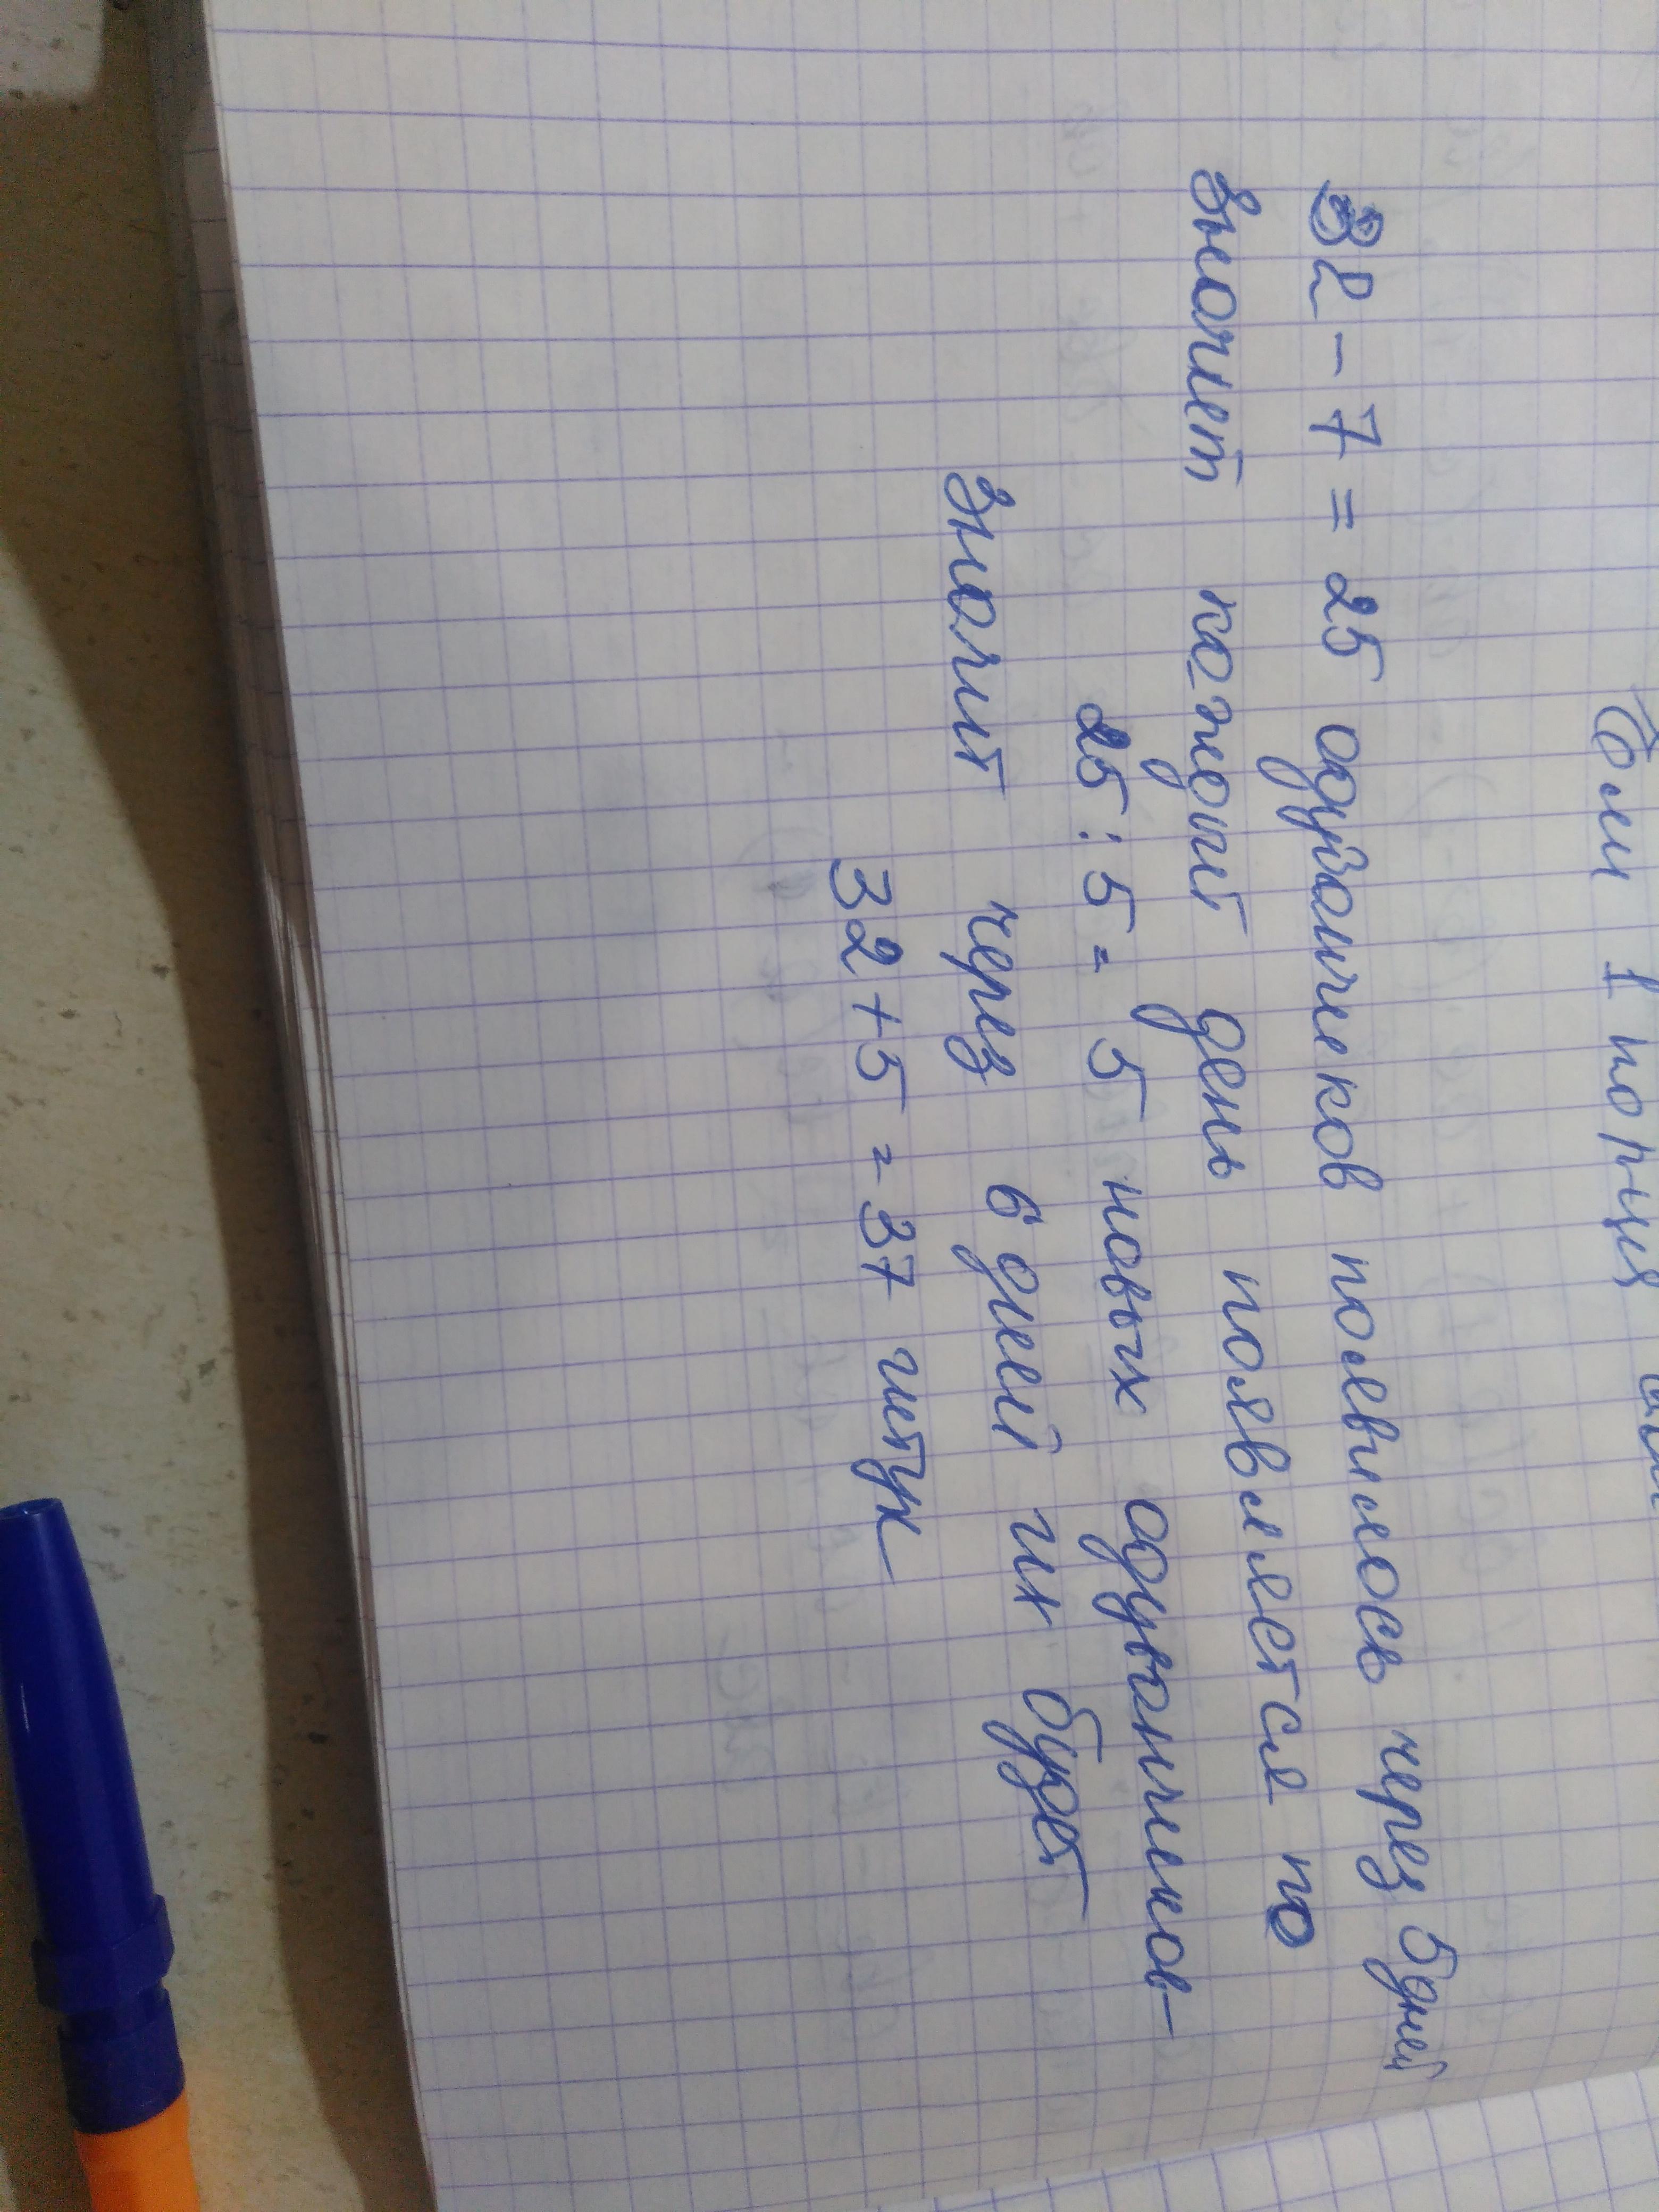 Если 1 порция
32 - 7 = 25 одуванчеков поевилось через 5 дней
Значет каждый день появляется по
25 : 5 = 5 новых одуванчиков
Значит через 6 дней их будет
32 + 5 = 37 штук